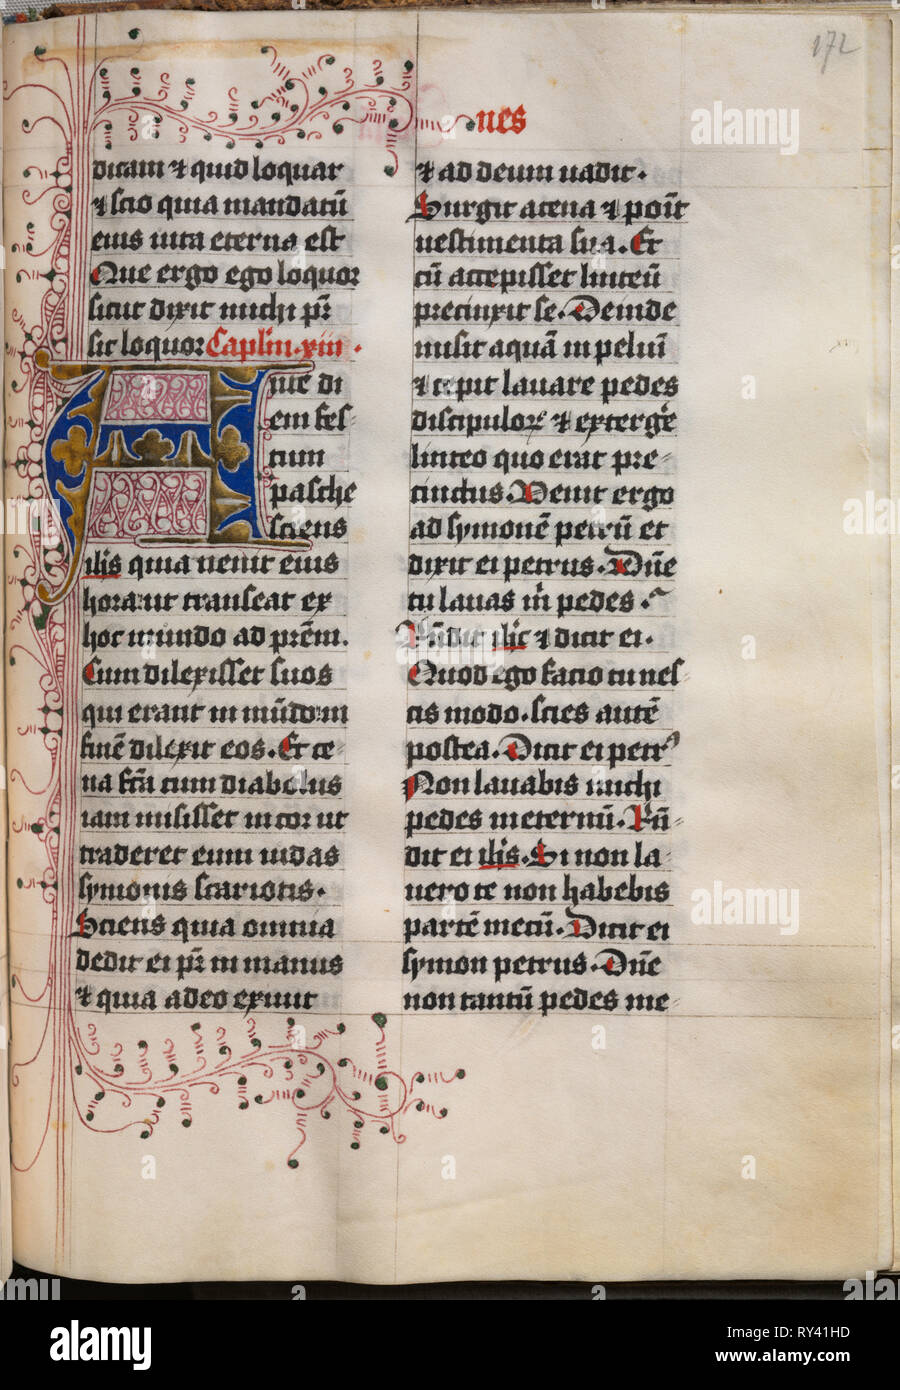 172
nes
dicam ⁊ quid loquar
⁊ scio quia mandatū
eius uita eterna est
Que ergo ego loquor
sicut dixit michi pr̄
sic loquor Caplm. xiii.
Ante di
em fes-
tum
pasche
sciens
ihs quia uenit eius
hora ut transeat ex
hoc mundo ad prēm.
Cum dilexisset suos
qui erant in mūdo in
finē dilexit eos. Et ce-
na fc̄a cum diabolus
iam misisset in cor ut
traderet eum iudas
symonis scariotis.
Sciens quia omnia
dedit ei pr̄ in manus
⁊ quia a deo exiuit
⁊ ad deum uadit.
Surgit a cena ⁊ ponit
uestimenta sua. Et
cū accepisset linteū
precinxit se. Deinde
misit aquā in peluī
⁊ cepit lauare pedes
discipuloꝝ ⁊ extergē
linteo quo erat pre-
cinctus. Venit ergo
ad symonē petrū et
dixit ei petrus. Dn̄e
tu lauas m̄ pedes.
Rn̄dit ihc ⁊ dicit ei.
Quod ego facio tu nes-
cis modo. scies autē
postea. Dicit ei petrꝰ
Non lauabis michi
pedes in eternū. Rn̄-
dit ei ihs. Si non la-
uero te non habebis
partē mecū. Dicit ei
symon petrus. Dn̄e
non tantū pedes me-
alamy
Image ID: RY41HD
www.alamy.com